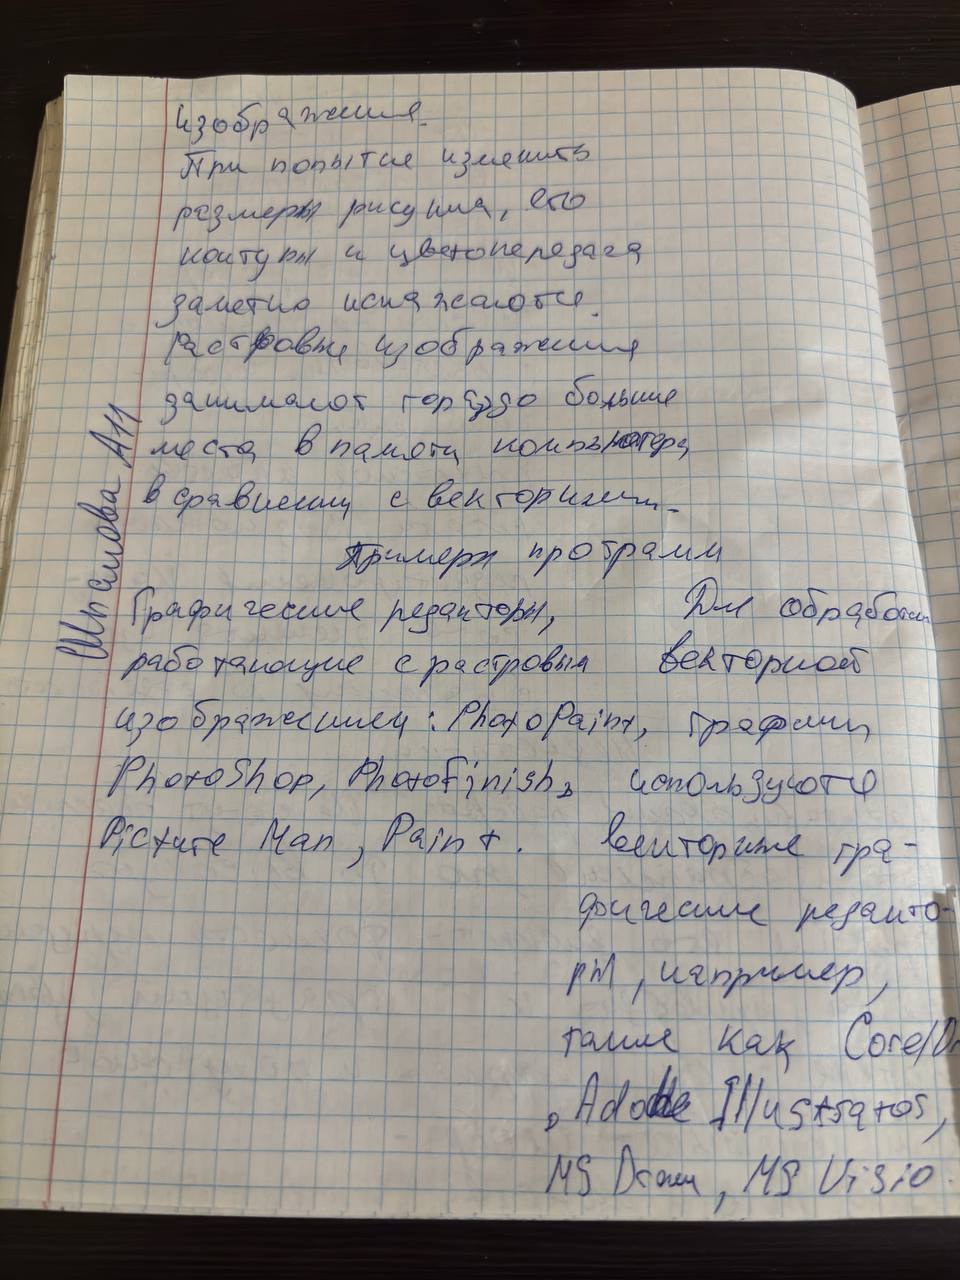 изображения.
При попытке изменить
размеры рисунка, его
контуры и цветопередача
заметно искажаются.
Растровые изображения
занимают гораздо больше
места в памяти компьютера,
в сравнении с векторными.
Примеры программ
Графические редакторы,
работающие с растровыми
изображениями: PhotoPaint,
PhotoShop, PhotoFinish,
Picture Man, Paint.
Для обработки
векторной
графики
используются
векторные гра-
фические редакто-
ры, например,
такие как CorelDr
, Adobe Illustrator,
MS Draw, MS Visio.
Шпакова А11